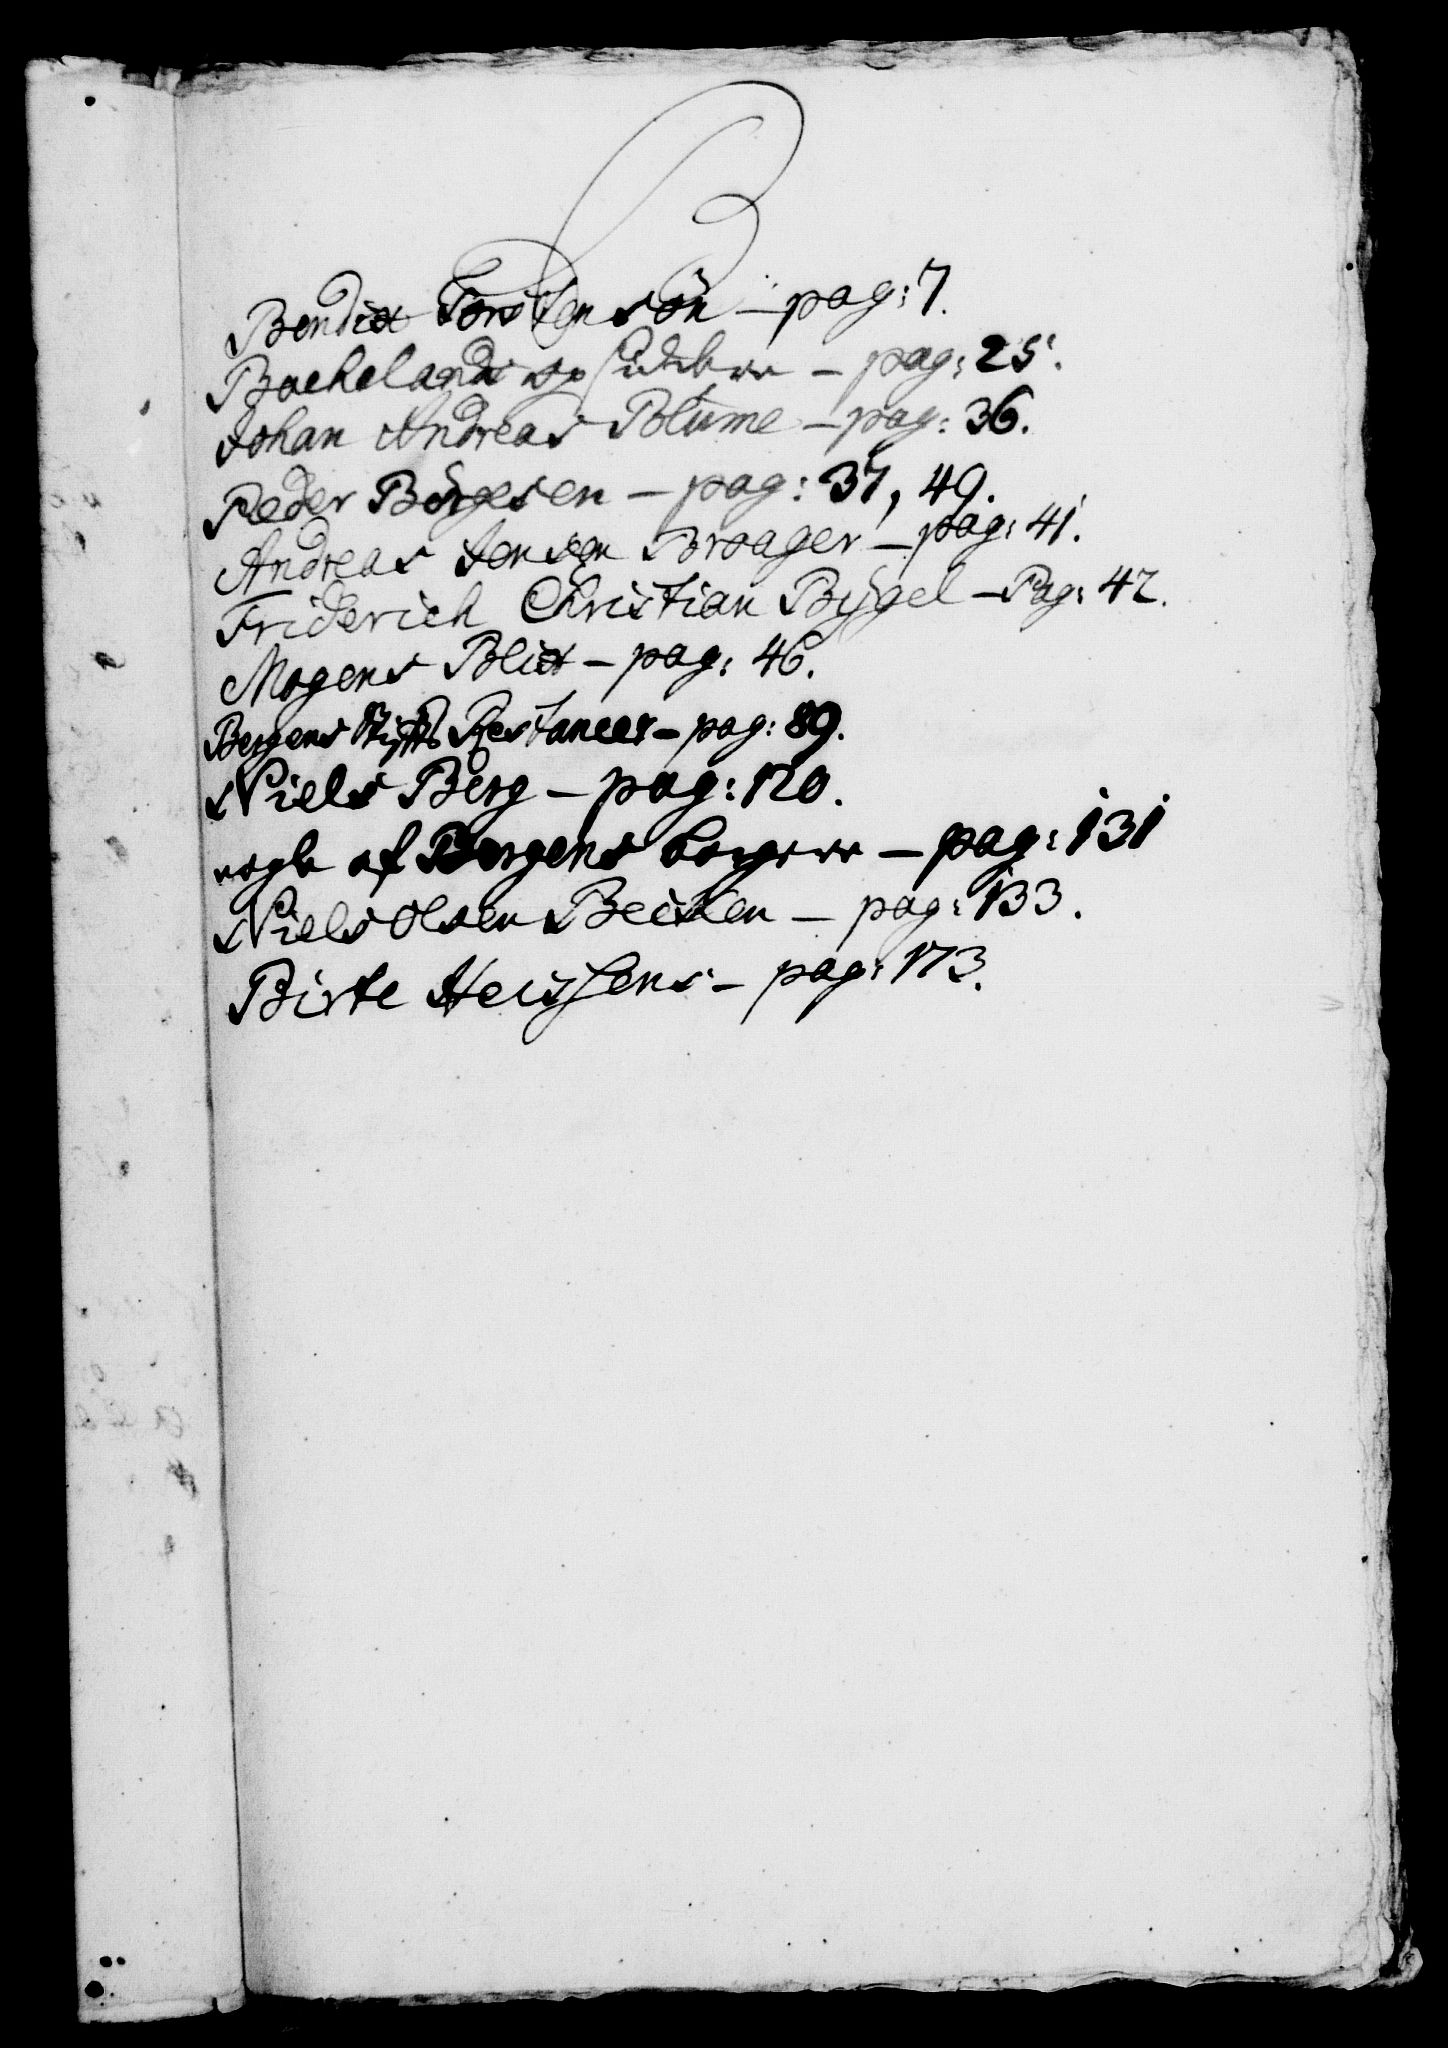 B
Bendix Torstensön – pag: 7.
Bachelands og – pag: 25.
Johan Andreas Blume – pag: 36.
Peder Börgesen – pag: 37, 49.
Andreas Jensen Broager – pag: 41.
Friderich Christian Bÿgel – Pag: 42.
Mogens Blix – pag: 46.
Bergens Stifts Restancer – pag: 89.
Niels Berg – pag: 120.
nogle af Bergens borgere – pag: 131
Niels Olsen Becken – pag: 133.
Birte – pag: 173.